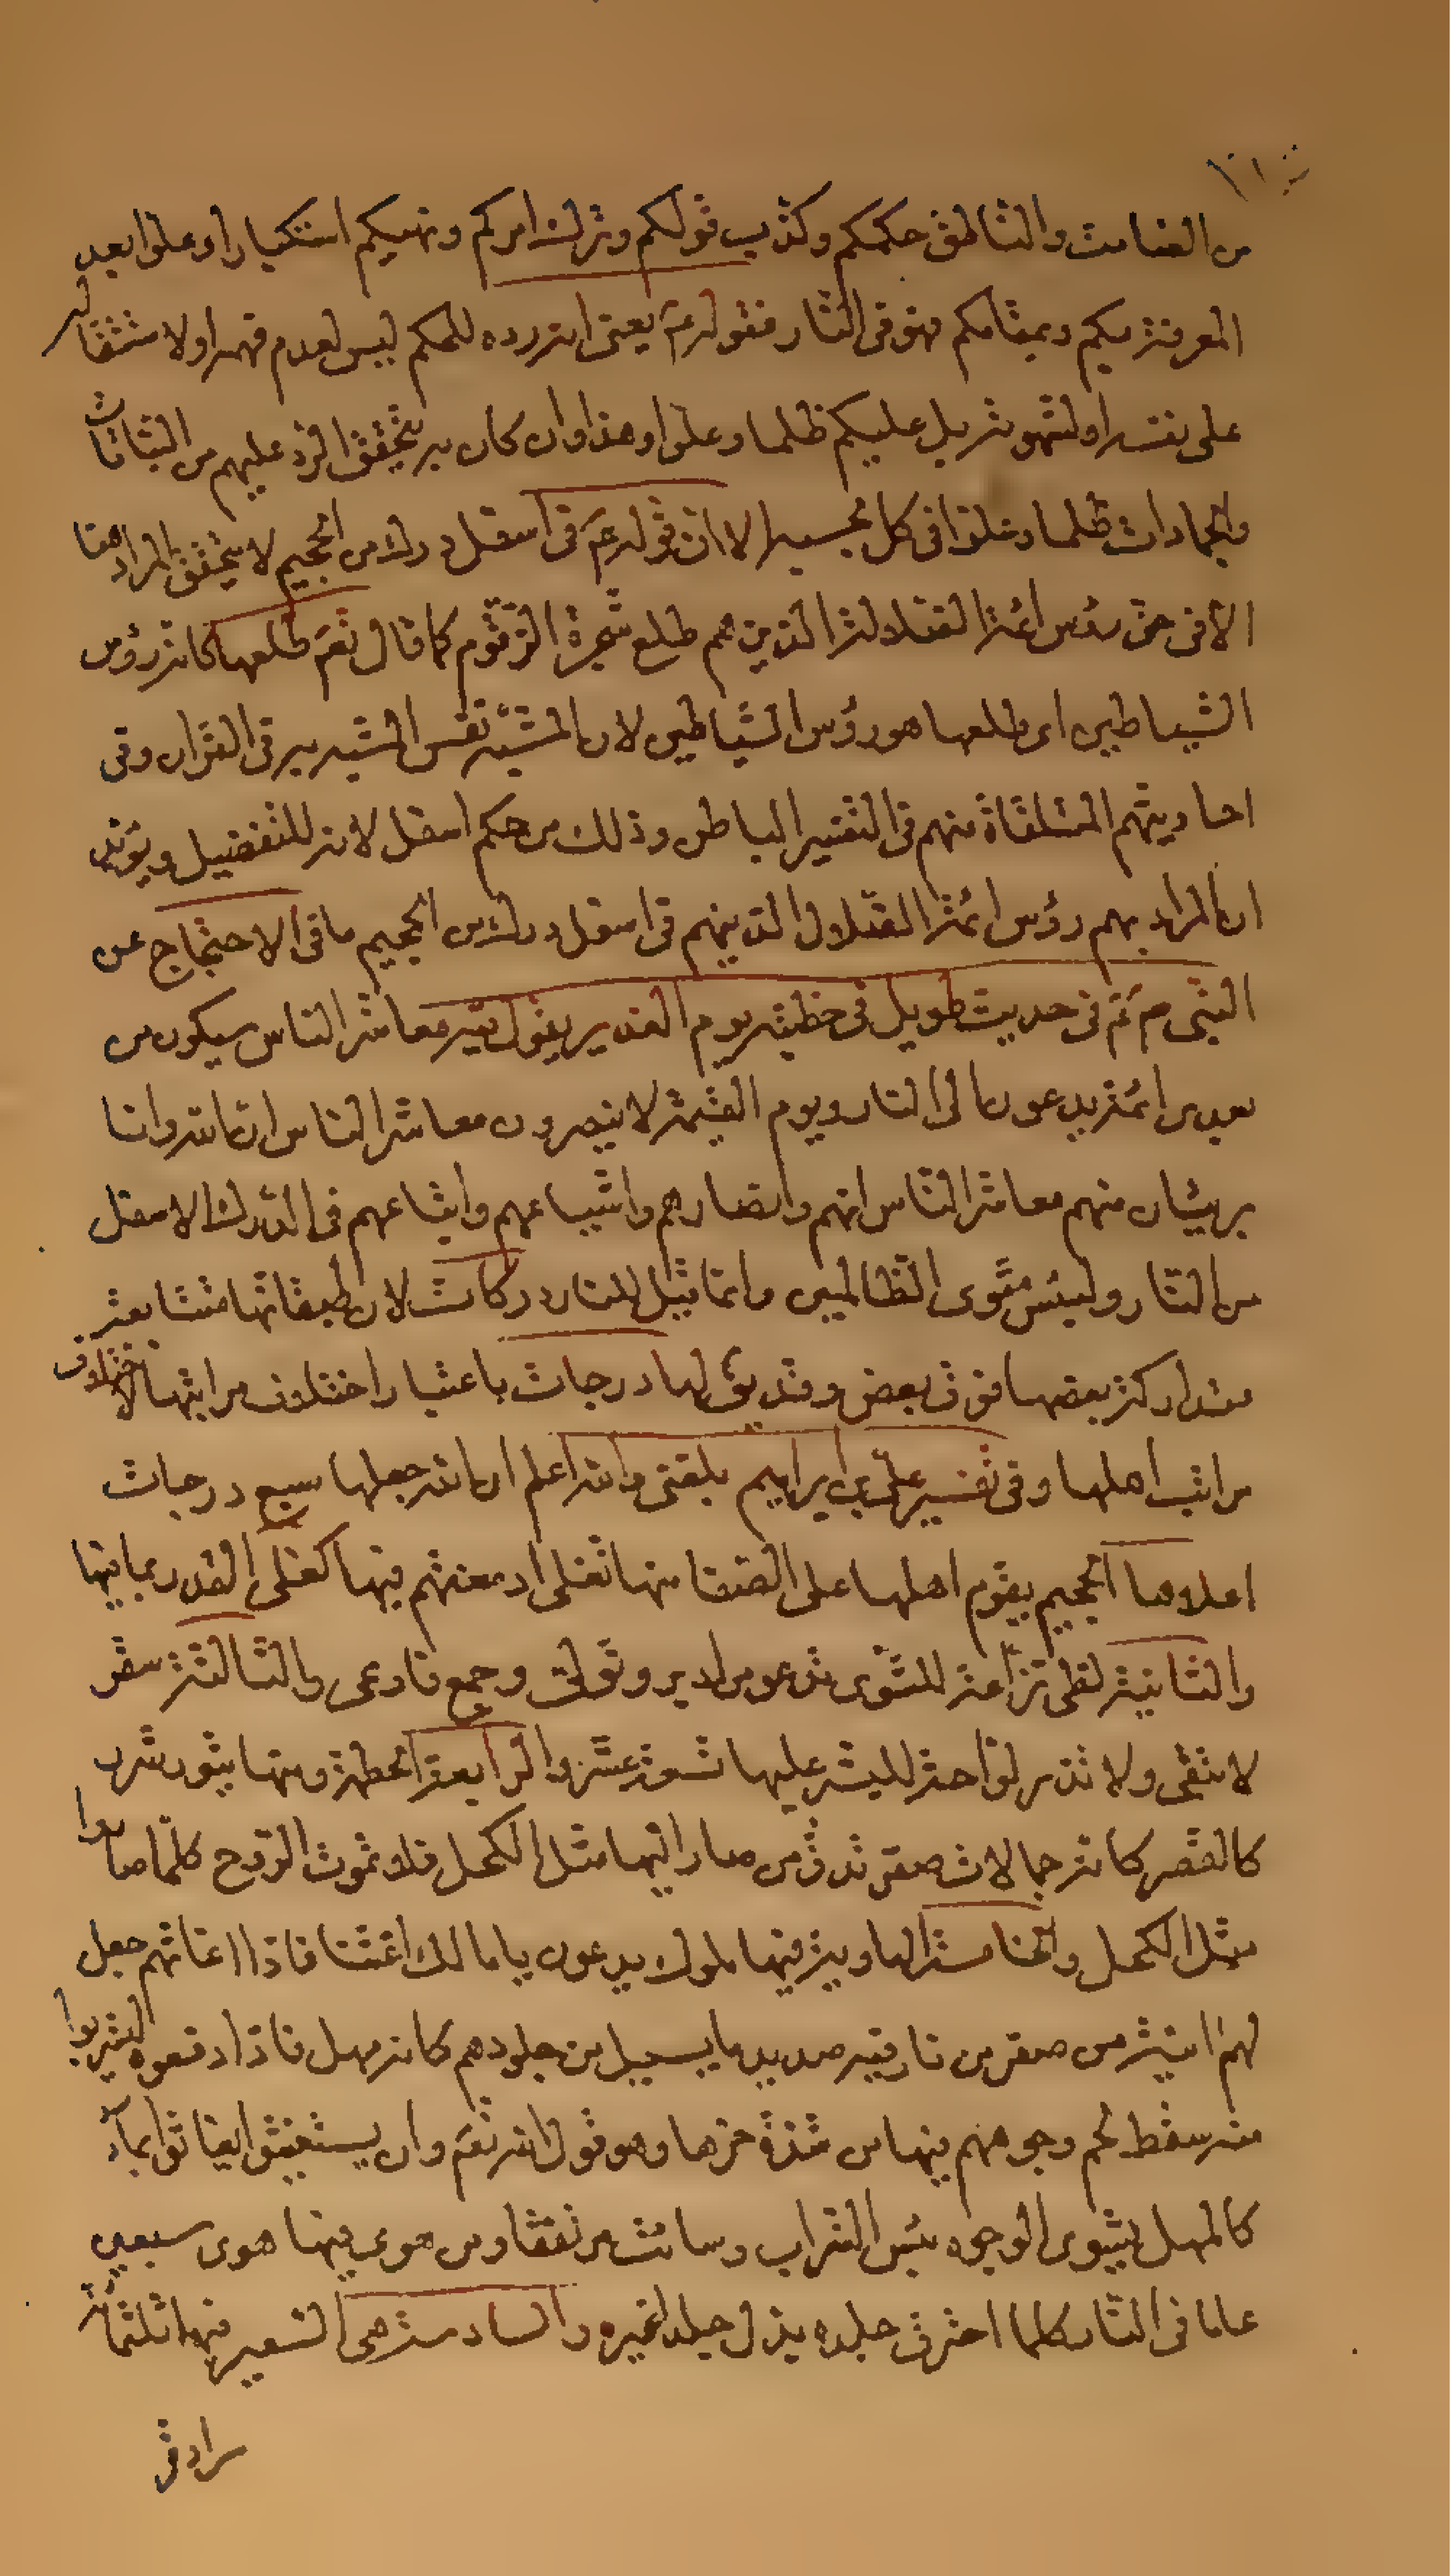 من الصامت والناطق حكمكم وكذب قولكم وترك امركم ونهيكم استكبارا وعلوا بعد
المعرفة بكم وبمقامكم فهو في النار فقوله ع يعني انه رده للحكم ليس لعدم فهمه او لاستثقاله
على نفسه او لتهوينه بل عليكم ظلما وعلوا وهذا وان كان به يتحقق الرد عليهم من النباتات
والجمادات ظلما وعلوا في كل بحسبه الا ان قوله ع في اسفل درك من الجحيم لا يتحقق المراد هنا
الا في حق رؤس ائمة الضلالة الذين هم طلع شجرة الزقوم كما قال تع طلعها كانه رؤس
الشياطين اى طلعها هو رؤس الشياطين لان المشبه نفس المشبه به في القران وفي
احاديثهم المتلقاة منهم في التفسير الباطن وذلك من حكم اسفل لانه للتفضيل ويؤيد
ان المراد بهم رؤس ائمة الضلال الذينهم في اسفل درك من الجحيم ما في الاحتجاج عن
النبى ص في حديث طويل في خطبته يوم الغدير يقول فيه معاشر الناس سيكون من
بعدى ائمة يدعون الى النار ويوم القيمة لا ينصرون معاشر الناس ان الله وانا
بريئان منهم معاشر الناس انهم وانصارهم واشياعهم واتباعهم في الدرك الاسفل
من النار ولبئس مثوى الظالمين وانما قيل للنار دركات لان طبقاتها متتابعة
متداركة بعضها فوق بعض وقد يق لها درجات باعتبار اختلاف مراتبها لاختلاف
مراتب اهلها وفي تفسير على بن ابراهيم بلغنى والله اعلم ان الله جعلها سبع درجات
اعلاها الجحيم يقوم اهلها على الصفا منها تغلى ادمغتهم فيها كغلى القدور بما فيها
والثانية لظى نزاعة للشوى تدعو من ادبر وتولى وجمع فاوعى والثالثة سقر
لا تبقى ولا تذر لواحة للبشر عليها تسعة عشر والرابعة الحطمة ومنها يثور شرر
كالقصر كانه جمالات صفر تدق من صار اليها مثل الكحل فلا تموت الروح كلما صاروا
مثل الكحل والخامسة الهاوية فيها ملوك يدعون يا مالك اغثنا فاذا اغاثهم جعل
لهم انية من صفر من نار فيه صديد ما يسيل من جلودهم كانه مهل فاذا رفعوه ليشربوا
منه سقط لحم وجوههم فيها من شدة حرها وهو قول الله تع وان يستغيثوا يغاثوا بماء
كالمهل يشوى الوجوه بئس الشراب وسائت مرتفقا ومن هوى فيها هوى سبعين
عاما في النار كلما احترق جلده بدل جلدا غيره والسادسة هى السعير فيها ثلثمائة
سرادق